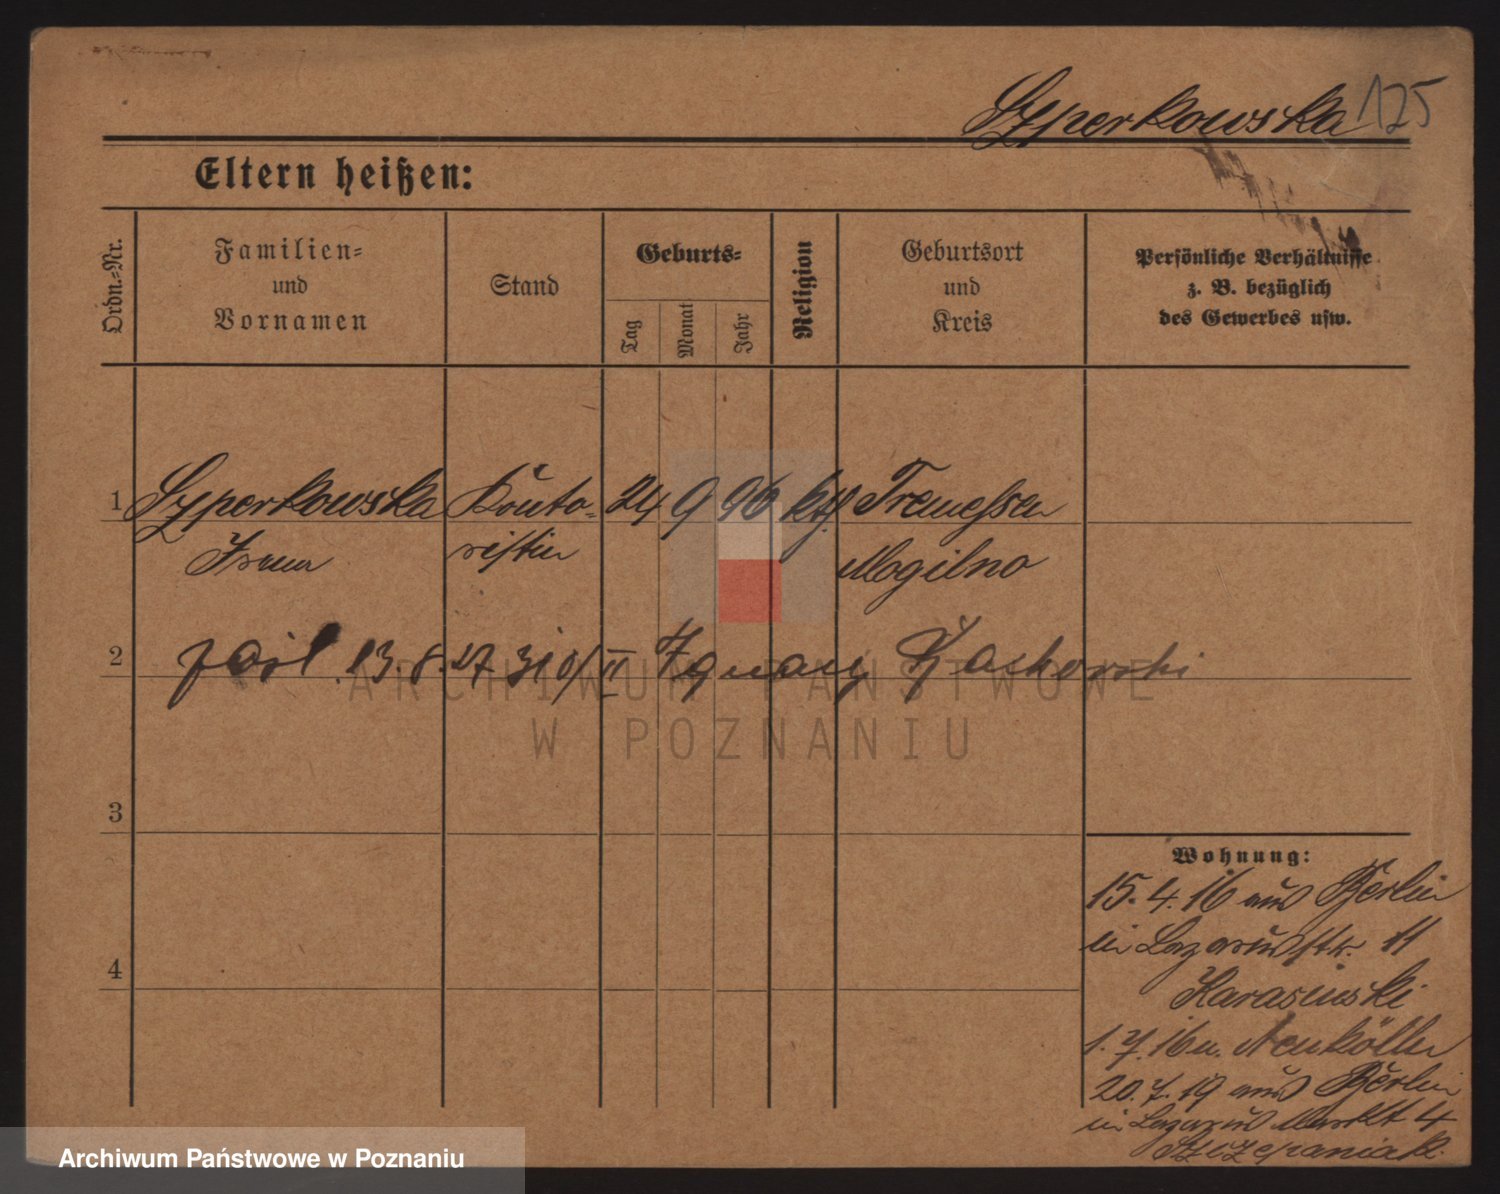 Szperkowska 125
Eltern heißen:
Ordn.-Nr.
Familien-
und
Vornamen
Stand
Geburts-
Tag
Monat
Jahr
Religion
Geburtsort
und
Kreis
Persönliche Verhältnisse
z. B. bezüglich
des Gewerbes usw.
1 Szperkowska Konto- 24 9 96 kth Tremessen
Irena ristin Mogilno
2 13.8.27 310/II Ignacy
3
4
Wohnung:
15.4.16 aus Berlin
in Lazarusstr. 11
Karasinski
1.7.16 n. Neukölln
20.7.19 aus Berlin
in Lazarus Markt 4
Szczepaniak
ARCHIWUM PAŃSTWOWE
W POZNANIU
Archiwum Państwowe w Poznaniu